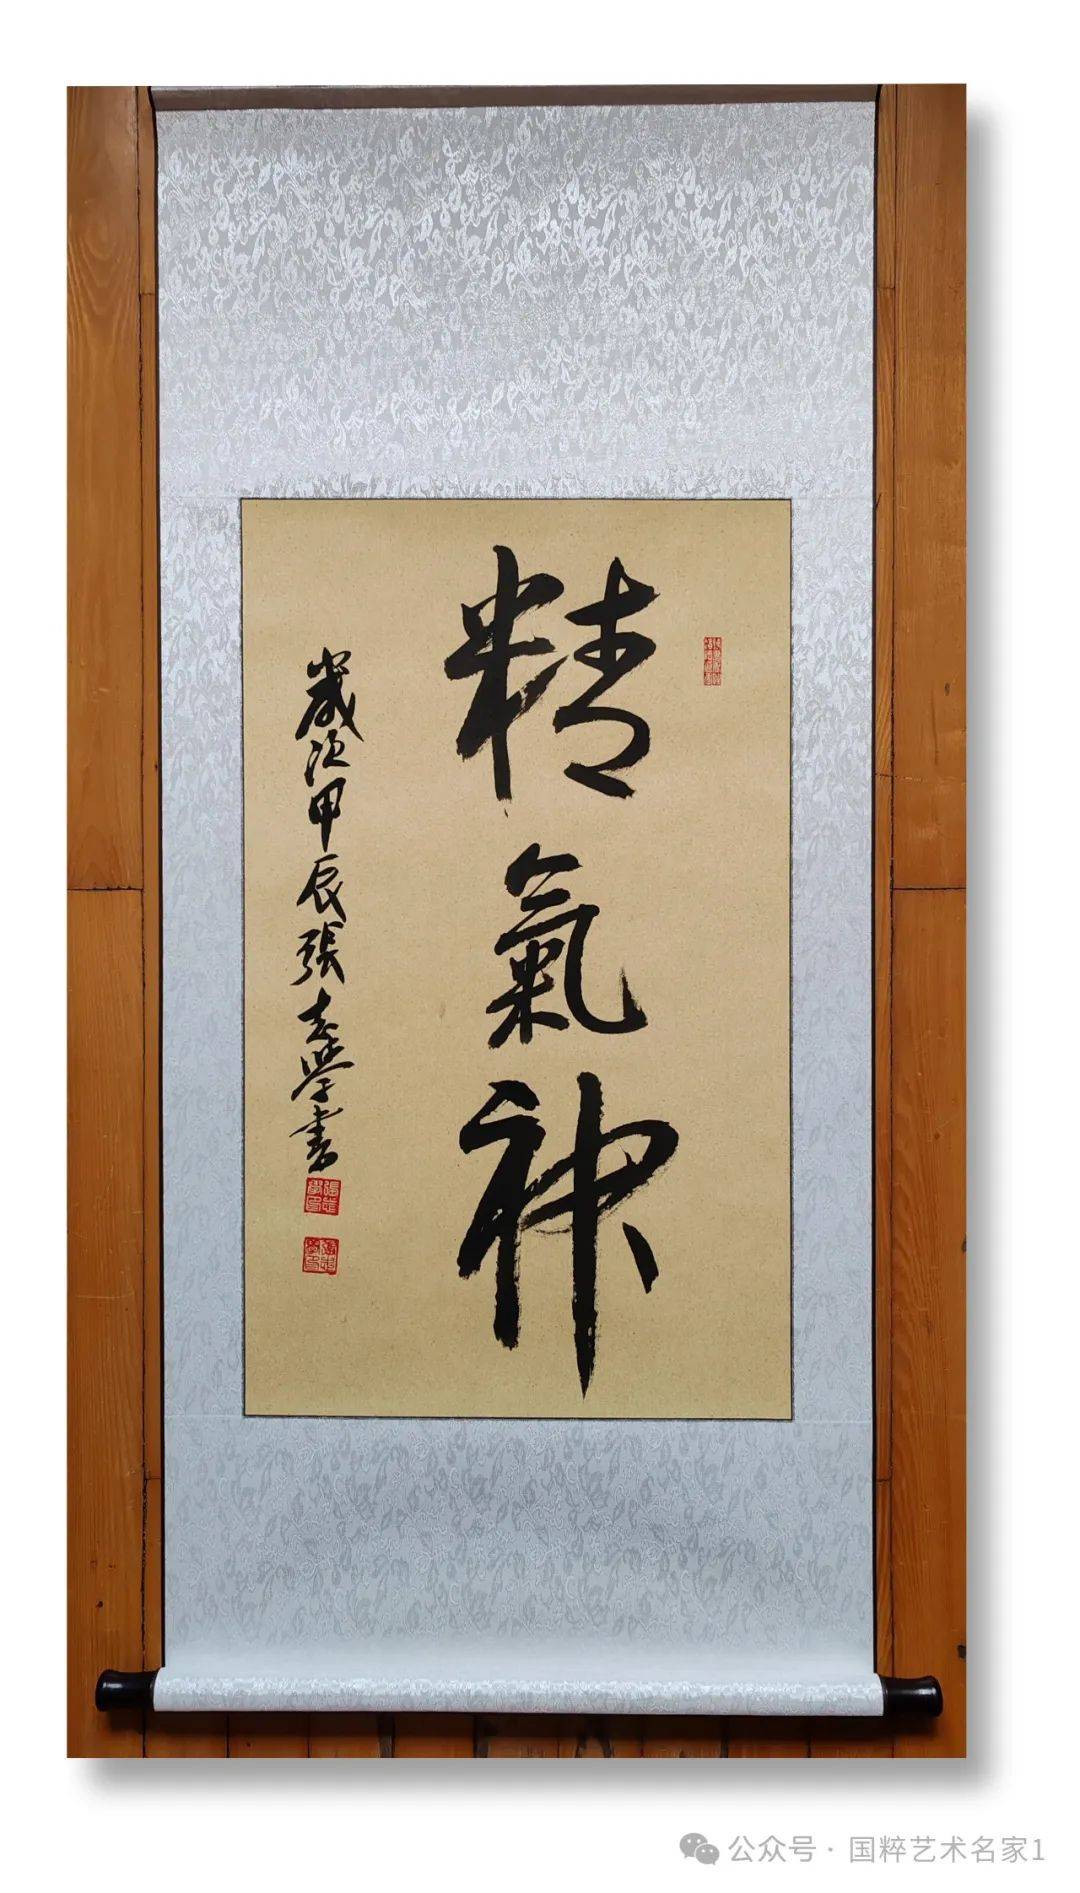 精氣神
歲次甲辰張志學書
公众号·国粹艺术名家1